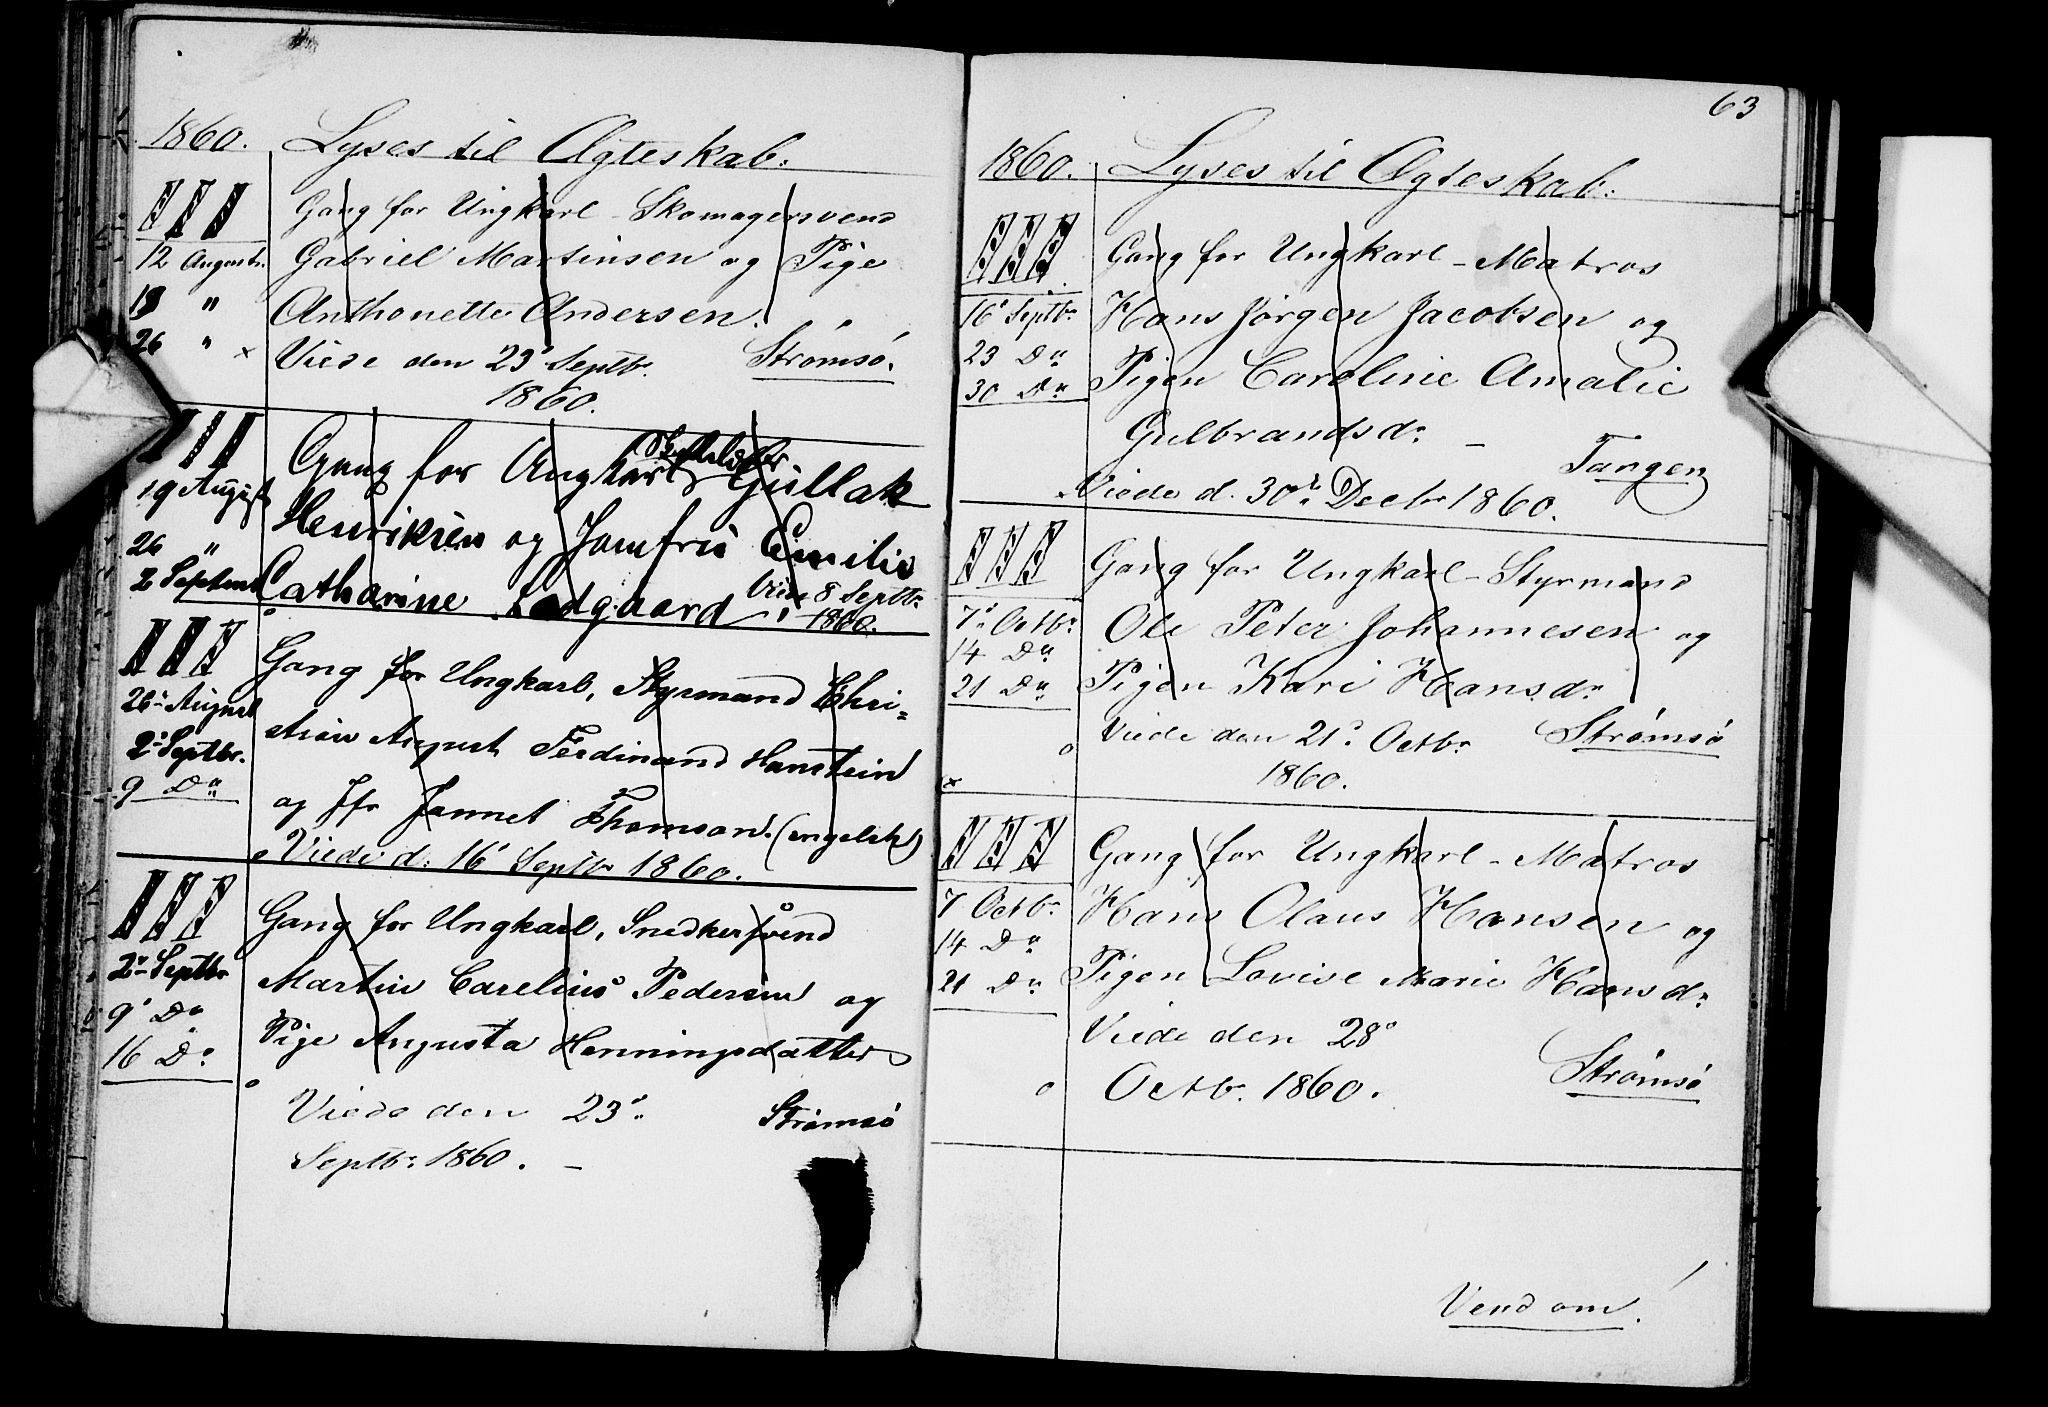 1860. Lyses til Ægteskab:
III Gang for Ungkarl Skomagersvend
12 August. Gabriel Martinsen og Pige
19 " Anthonette Andersen.
26 " x Viede den 23' Septbr. Strømsø.
1860.
III Gang for Ungkarl Gullak
19 August Henriksen og Jomfru Emilie
26 "
2 Septembr Catharine Lodgaard Viede 8 Septbr
1860.
III Gang for Ungkarl, Styrmand Chri=
26' August stian August Ferdinand Hanstein
2' Septbr.
9 Do og Jfr Jannet Thomson. (engelsk)
o Viede d: 16' Septbr 1860.
III Gang for Ungkarl, Snedkersvend
2' Septbr Martin Carelius Pedersen og
9' Do
16 Do Pige Augusta Henningsdatter
o Viede den 23' Strømsø
Septbr. 1860. –
63
1860. Lyses til Ægteskab:
III Gang for Ungkarl – Matros
16' Septbr. Hans Jørgen Jacobsen og
23 Do
30 Do Pigen Caroline Amalie
Gulbrandsdr – Tangen
Viede d. 30' Decbr 1860.
III Gang for Ungkarl – Styrmand
7' Octbr. Ole Peter Johannesen og
14 Do
21 Do Pigen Kari Hansdr
o Viede den 21' Octbr Strømsø
x 1860.
III Gang for Ungkarl – Matros
7 Octbr. Hans Olaus Hansen og
14 Do
21 Do Pigen Lovise Marie Hansdr
Viede den 28'
o Octbr. 1860. Strømsø
Vend om!